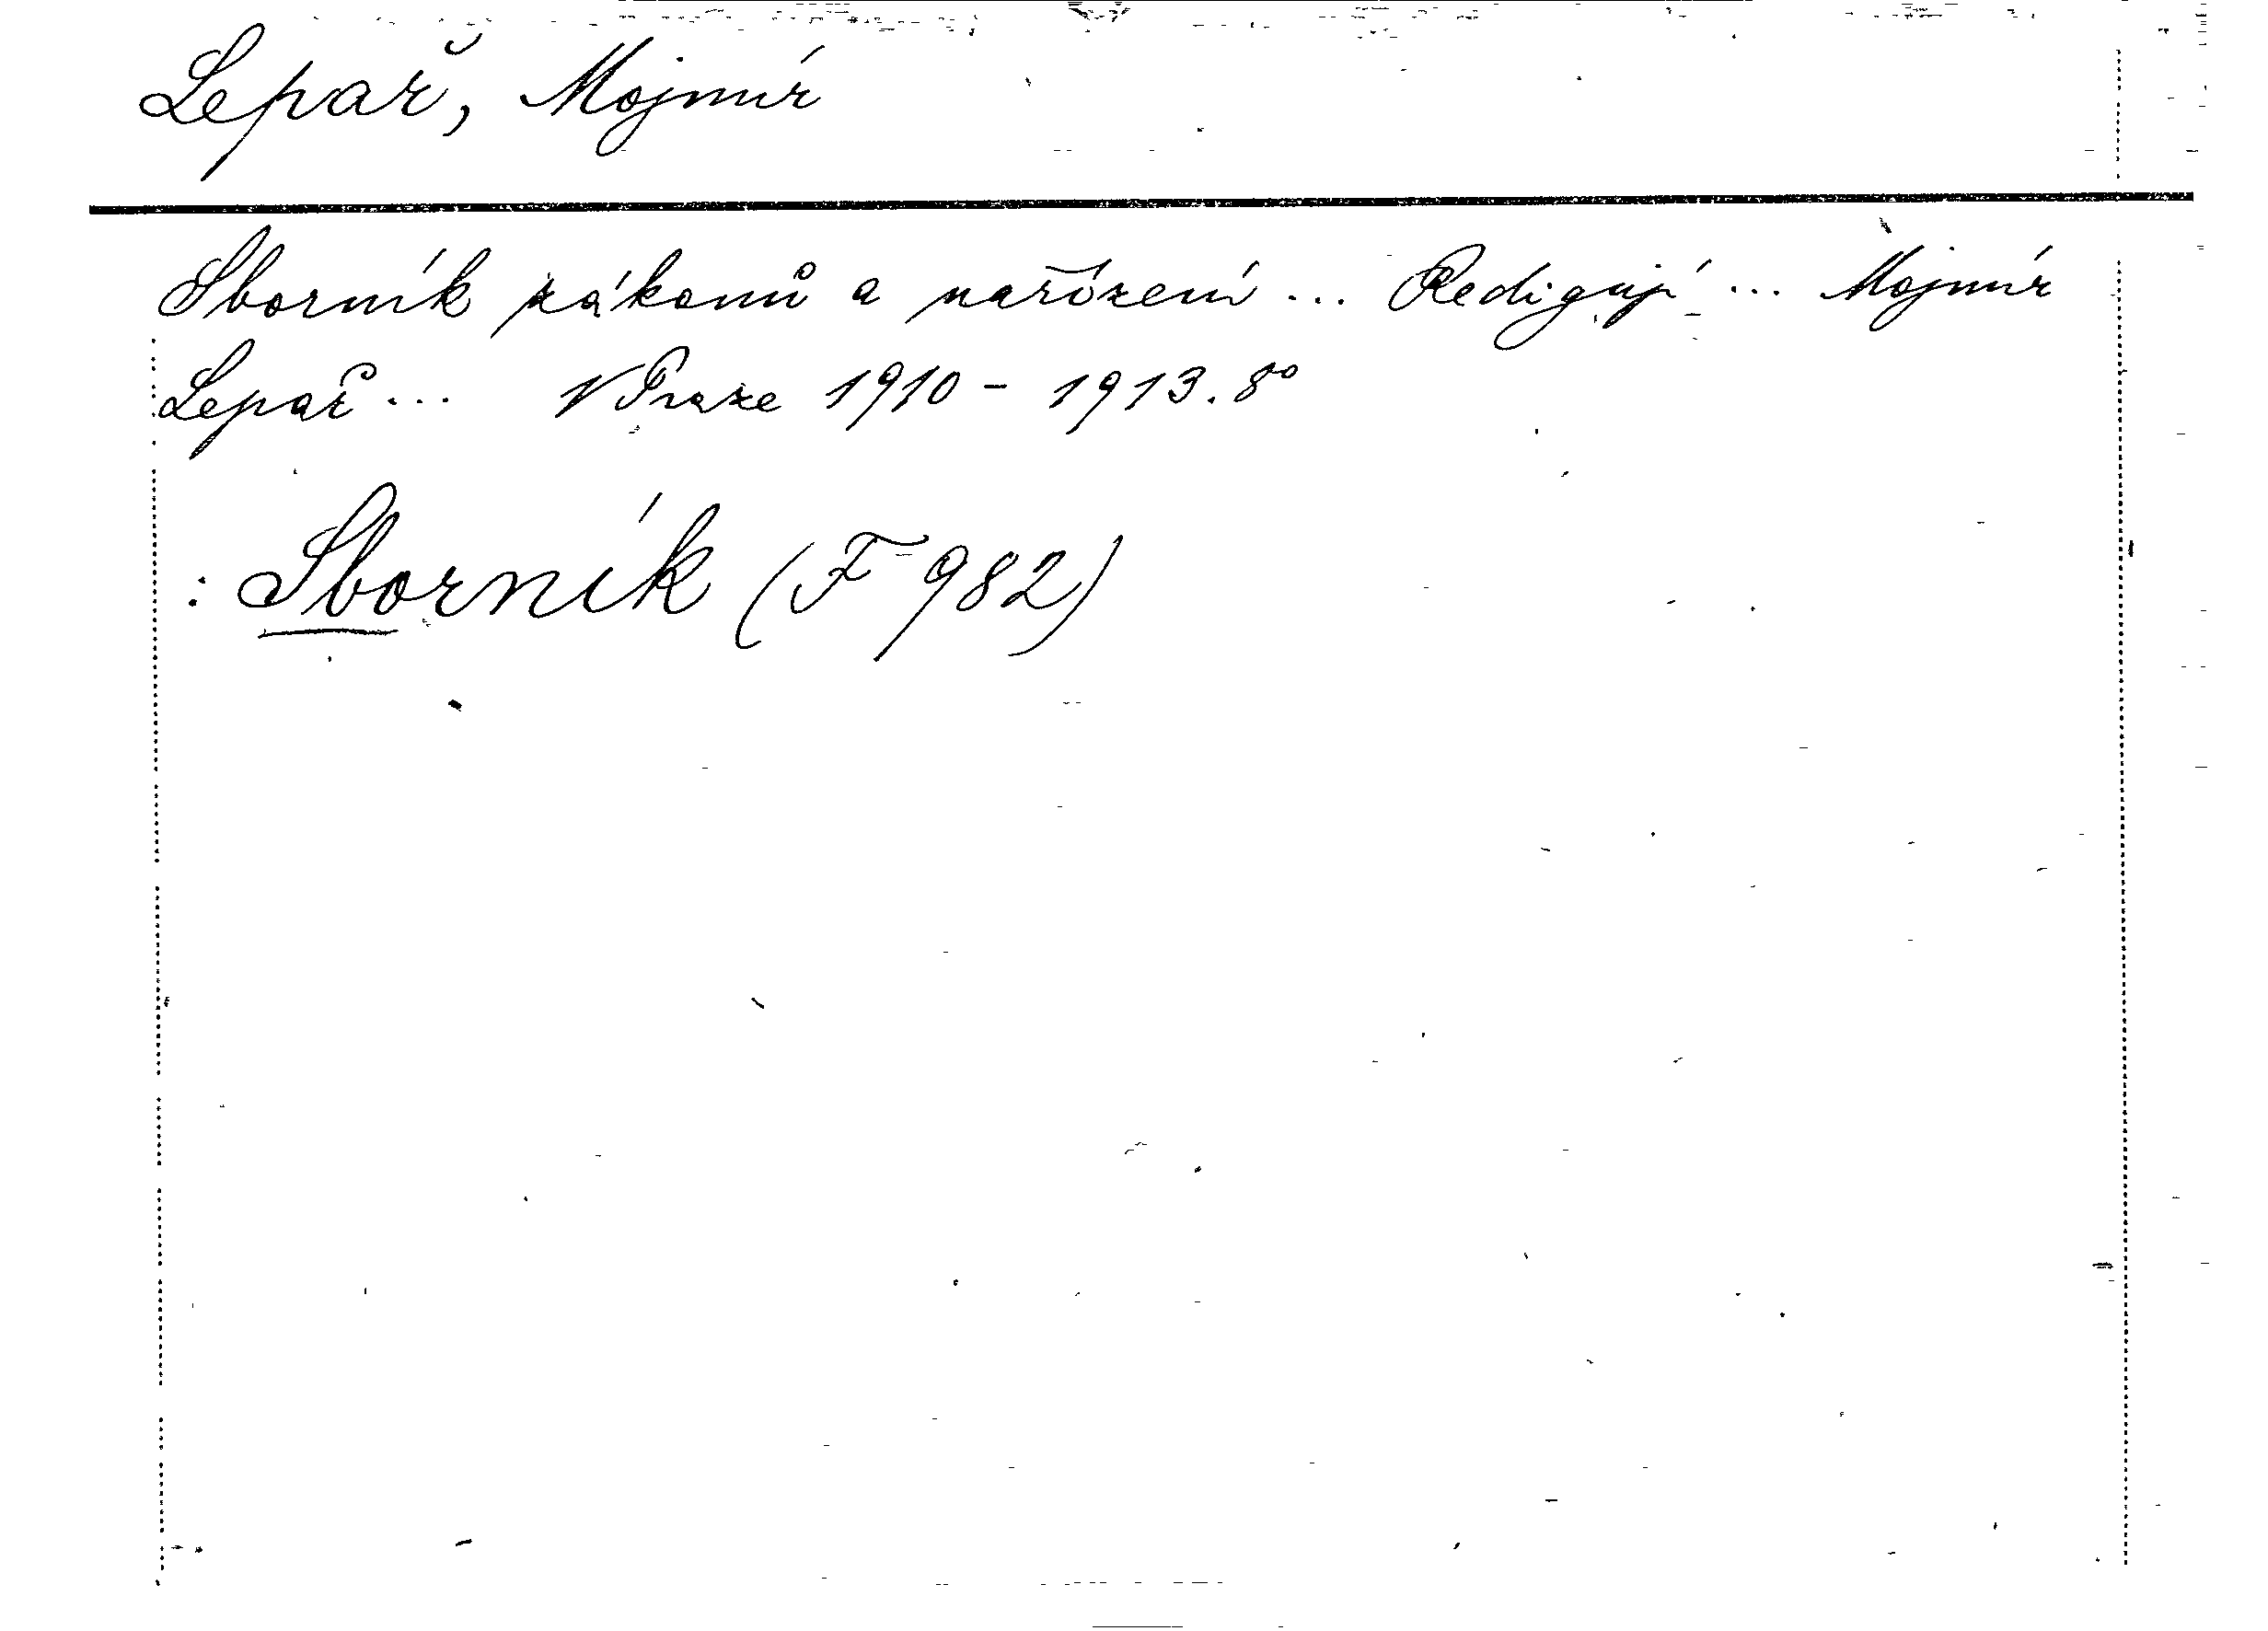 Lepař, Mojmír
Sborník zákonů a nařízení ... Redigují ... Mojmír
Lepař ... V Praze 1910 - 1913. 8°
: Sborník (F 982)